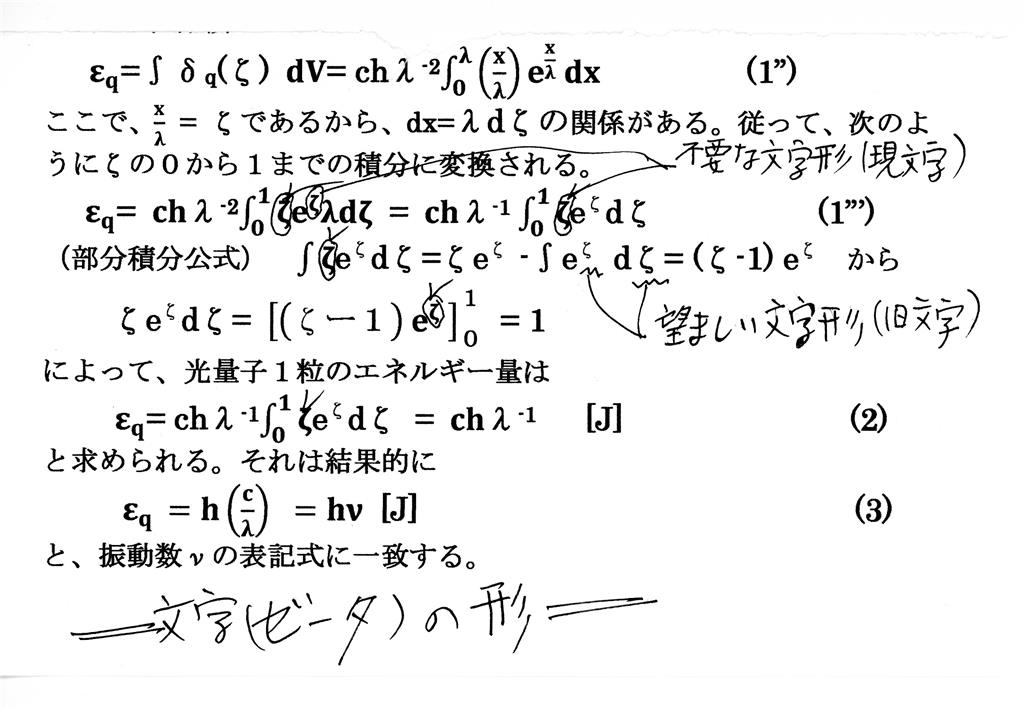 εq=∫ δq(ζ) dV= ch λ⁻²∫₀^λ (x/λ) e^(x/λ) dx (1”)
ここで、x/λ = ζであるから、dx=λdζの関係がある。従って、次のよ
うにζの0から1までの積分に変換される。
不要な文字形(現文字)
εq= ch λ⁻²∫₀¹ ζe^ζ λdζ = ch λ⁻¹ ∫₀¹ ζe^ζ dζ (1”’)
(部分積分公式) ∫ζe^ζ dζ=ζe^ζ - ∫e^ζ dζ=(ζ-1)e^ζ から
ζe^ζ dζ= [(ζー1)e^ζ]₀¹ =1
望ましい文字形(旧文字)
によって、光量子1粒のエネルギー量は
εq= ch λ⁻¹∫₀¹ ζe^ζ dζ = ch λ⁻¹ [J] (2)
と求められる。それは結果的に
εq = h(c/λ) = hν [J] (3)
と、振動数νの表記式に一致する。
文字(ゼータ)の形